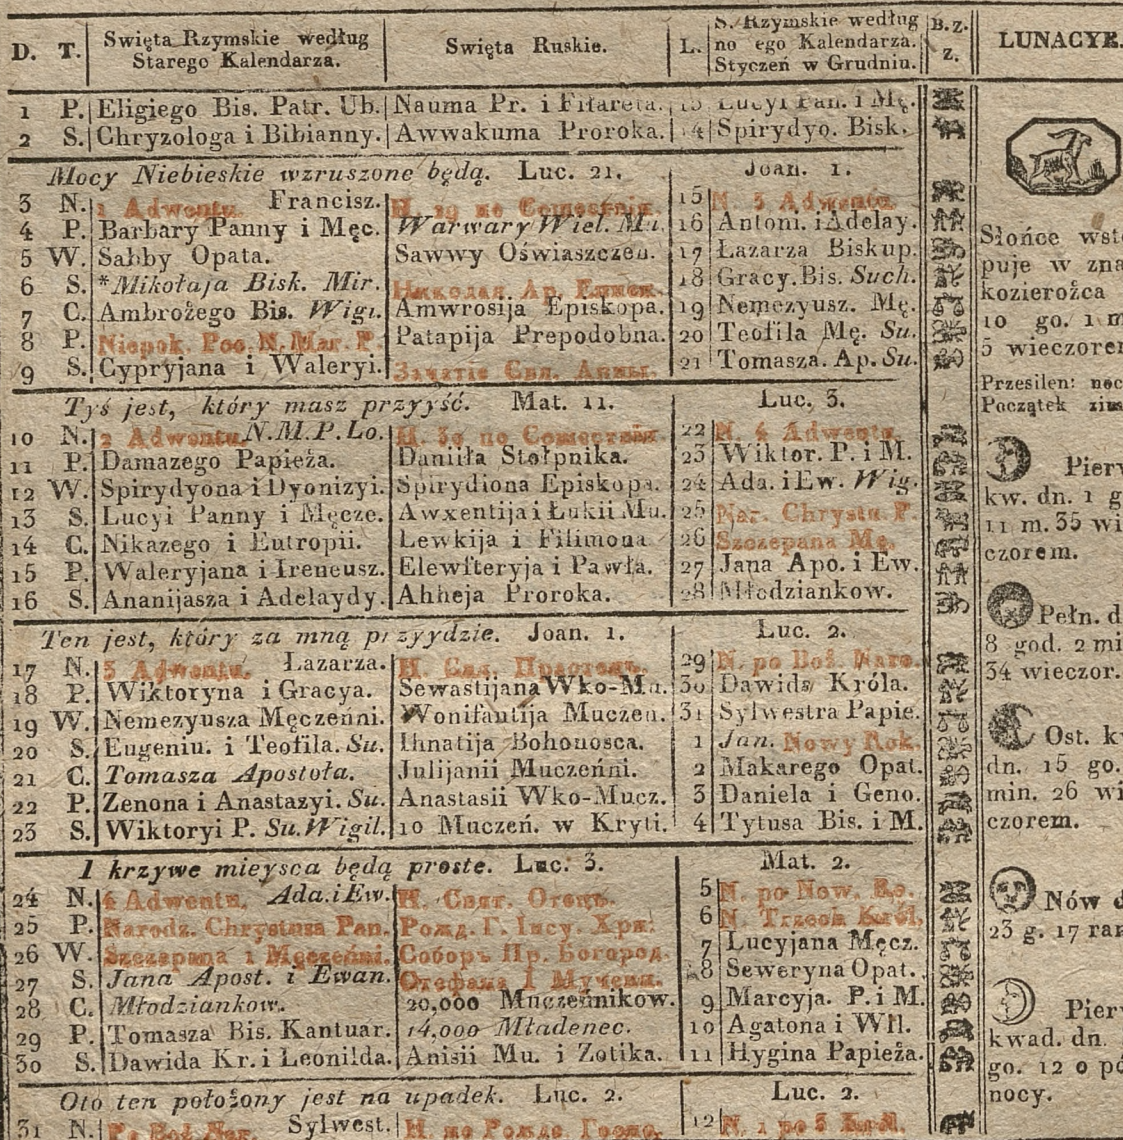 D. T. Swięta Rzymskie według Starego Kalendarza. Swięta Ruskie. L. S. Rzymskie według no ego Kalendarza. Styczeń w Grudniu. B.z. z. LUNACYE.
1 P. Eligiego Bis. Patr. Ub. Nauma Pr. i Fifareta. 13 Lucyi Pan. i Mę.
2 S. Chryzologa i Bibianny. Awwakuma Proroka. 14 Spirydyo. Bisk.
Mocy Niebieskie wzruszone będą. Luc. 21. Joan. 1.
3 N. 1 Adwentu. Francisz. 15 N. 3 Adwentu.
4 P. Barbary Panny i Męc. Warwary Wiel. Mu. 16 Antoni. i Adelay.
5 W. Sabby Opata. Sawwy Oświaszczen. 17 Łazarza Biskup.
6 S. *Mikołaja Bisk. Mir. 18 Gracy. Bis. Such.
7 C. Ambrożego Bis. Wigi. Amwrosija Episkopa. 19 Nemezyusz. Mę.
8 P. Niepok. Poc. N. Mar. P. Patapija Prepodobna. 20 Teofila Mę. Su.
9 S. Cypryjana i Waleryi. Зачатіе Свя. Анны. 21 Tomasza. Ap. Su.
Tyś jest, który masz przyyść. Mat. 11. Luc. 3.
10 N. 2 Adwentu. N.M.P.Lo. 22 N. 4 Adwentu.
11 P. Damazego Papieża. Daniiła Stołpnika. 23 Wiktor. P. i M.
12 W. Spirydyona i Dyonizyi. Spirydiona Episkopa. 24 Ada. i Ew. Wig.
13 S. Lucyi Panny i Męcze. Awxentija i Łukii Mu. 25 Nar. Chrystu. P.
14 C. Nikazego i Eutropii. Lewkija i Filimona 26 Szczepana Mę.
15 P. Waleryjana i Ireneusz. Elewfteryja i Pawła. 27 Jana Apo. i Ew.
16 S. Ananijasza i Adelaydy. Ahheja Proroka. 28 Młodziankow.
Ten jest, który za mną przyydzie. Joan. 1. Luc. 2.
17 N. 3 Adwentu. Łazarza. 29 N. po Boż. Naro.
18 P. Wiktoryna i Gracya. Sewastijana Wko-Mu. 30 Dawida Króla.
19 W. Nemezyusza Męczenni. Wonifantija Muczen. 31 Sylwestra Papie.
20 S. Eugeniu. i Teofila. Su. Ihnatija Bohonosca. 1 Jan. Nowy Rok.
21 C. Tomasza Apostoła. Julijanii Muczeńni. 2 Makarego Opat.
22 P. Zenona i Anastazyi. Su. Anastasii Wko-Mucz. 3 Daniela i Geno.
23 S. Wiktoryi P. Su. Wigil. 10 Muczeń. w Kryti. 4 Tytusa Bis. i M.
I krzywe mieysca będą proste. Luc. 3. Mat. 2.
24 N. 4 Adwentu. Ada. i Ew. Н. Свят. Отецъ. 5 N. po Now. Ro.
25 P. Narodz. Chrystusa Pan. Рожд. Г. Іису. Хри. 6 N. Trzech Król.
26 W. Szczepana 1 Męczeńni. Соборъ Пр. Богород. 7 Lucyjana Męcz.
27 S. Jana Apost. i Ewan. Стефана 1 Мучени. 8 Seweryna Opat.
28 C. Młodziankow. 20,000 Muczeńnikow. 9 Marcyja. P. i M.
29 P. Tomasza Bis. Kantuar. 14,000 Mładenec. 10 Agatona i Wil.
30 S. Dawida Kr. i Leonilda. Anisii Mu. i Zotika. 11 Hygina Papieża.
Oto ten położony jest na upadek. Luc. 2. Luc. 2.
31 N. Po Boż. Nar. Sylwest. 12 N. 1 po 3 Król.
Słońce wstę
puje w zna
kozierożca
10 go. 1 m
5 wieczorem
Przesilen: noc
Początek zim
Pierw
kw. dn. 1 g
11 m. 35 wi
czorem.
Pełn. d
8 god. 2 mi
34 wieczor.
Ost. kw
dn. 15 go.
min. 26 wi
czorem.
Nów d
23 g. 17 ran
Pierw
kwad. dn.
go. 12 o pó
nocy.